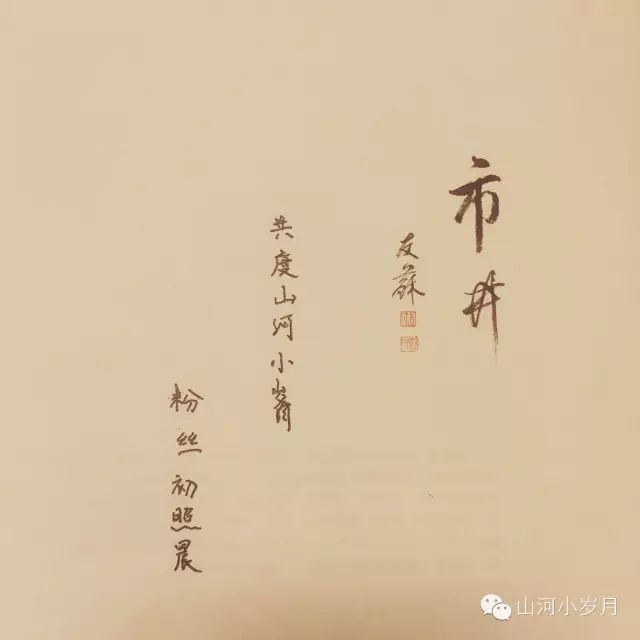 市井
友蘇
共度山河小岁月
粉丝初照晨
山河小岁月